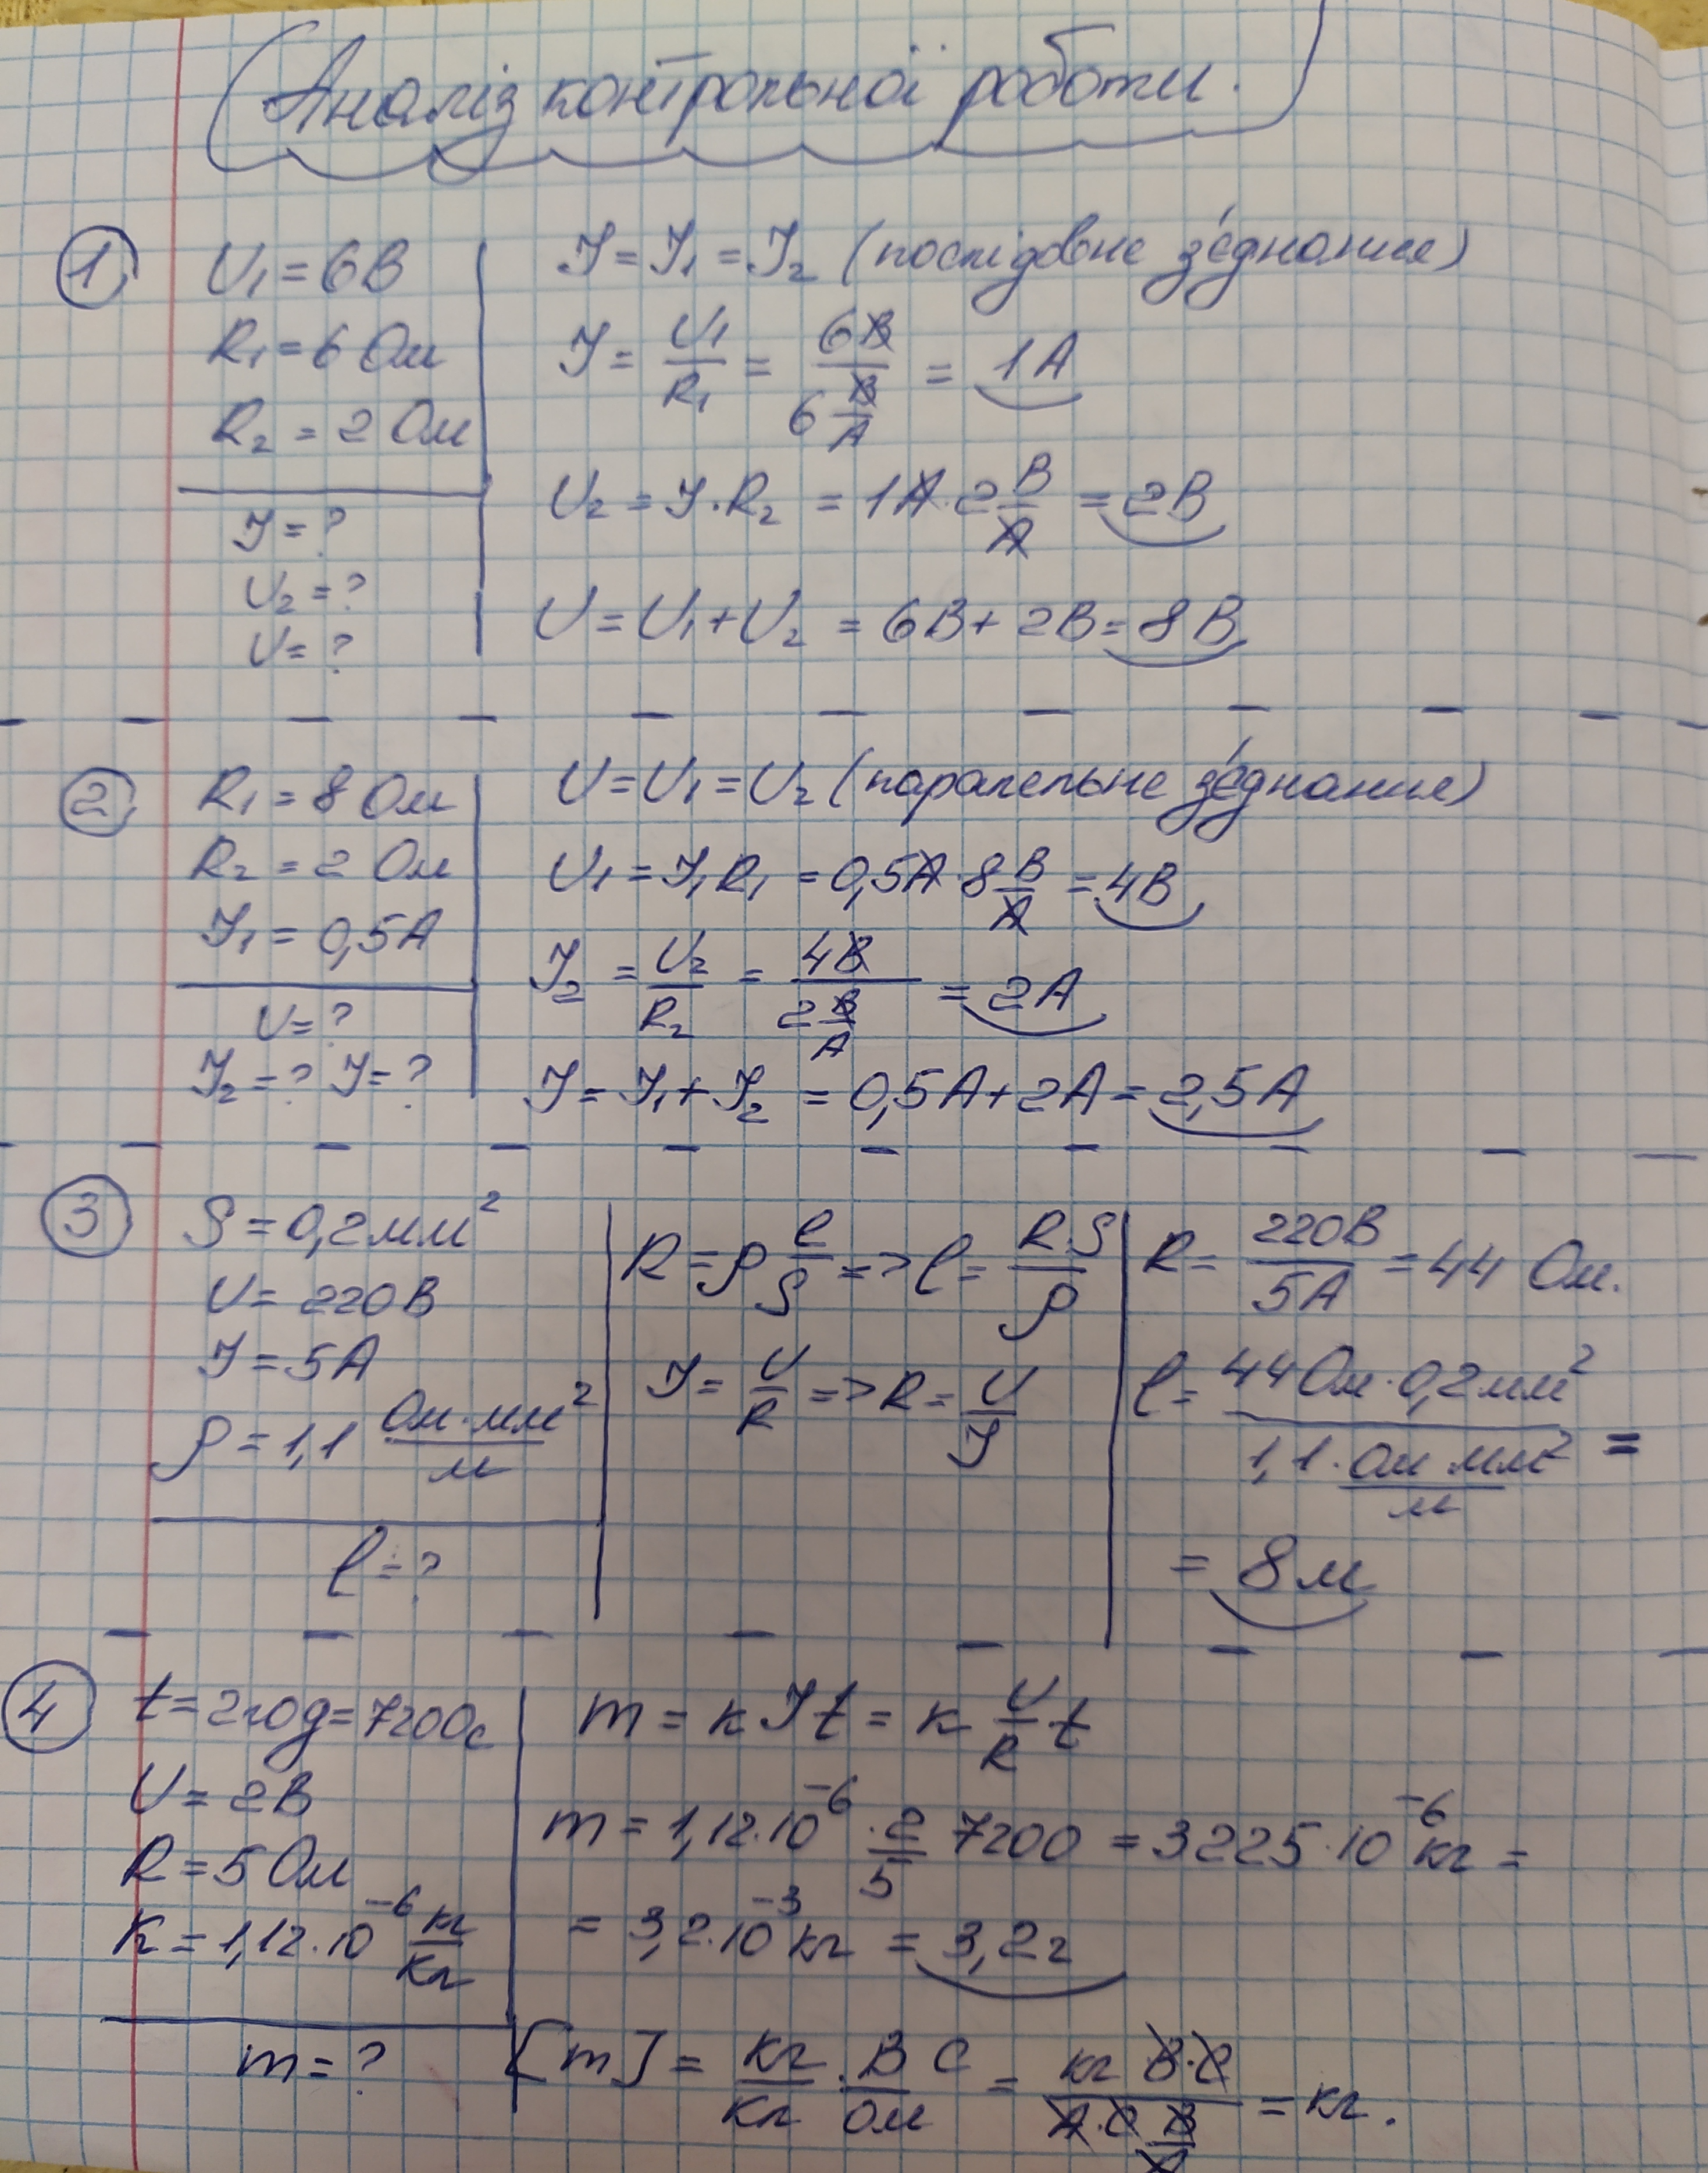 Аналіз контрольної роботи.
① U₁ = 6В
R₁ = 6 Ом
R₂ = 2 Ом
I = ?
U₂ = ?
U = ?
I = I₁ = I₂ (послідовне з'єднання)
I = U₁/R₁ = 6В/(6 В/А) = 1А
U₂ = I·R₂ = 1А·2 В/А = 2В
U = U₁ + U₂ = 6В + 2В = 8В
② R₁ = 8 Ом
R₂ = 2 Ом
I₁ = 0,5А
U = ?
I₂ = ? I = ?
U = U₁ = U₂ (паралельне з'єднання)
U₁ = I₁R₁ = 0,5А·8 В/А = 4В
I₂ = U₂/R₂ = 4В/(2 В/А) = 2А
I = I₁ + I₂ = 0,5А + 2А = 2,5А
③ S = 0,2мм²
U = 220В
I = 5А
ρ = 1,1 Ом·мм²/м
l = ?
R = ρ l/S => l = R·S/ρ
I = U/R => R = U/I
R = 220В/5А = 44 Ом.
l = 44Ом·0,2мм²/(1,1·Ом мм²/м) =
= 8м
④ t = 2год = 7200с
U = 2В
R = 5 Ом
K = 1,12·10⁻⁶ кг/Кл
m = ?
m = кIt = к U/R·t
m = 1,12·10⁻⁶·2/5 7200 = 3225·10⁻⁶кг =
= 3,2·10⁻³кг = 3,2г
[m] = кг/Кл·В/Ом с = кг В·с/(А·с В/А) = кг.